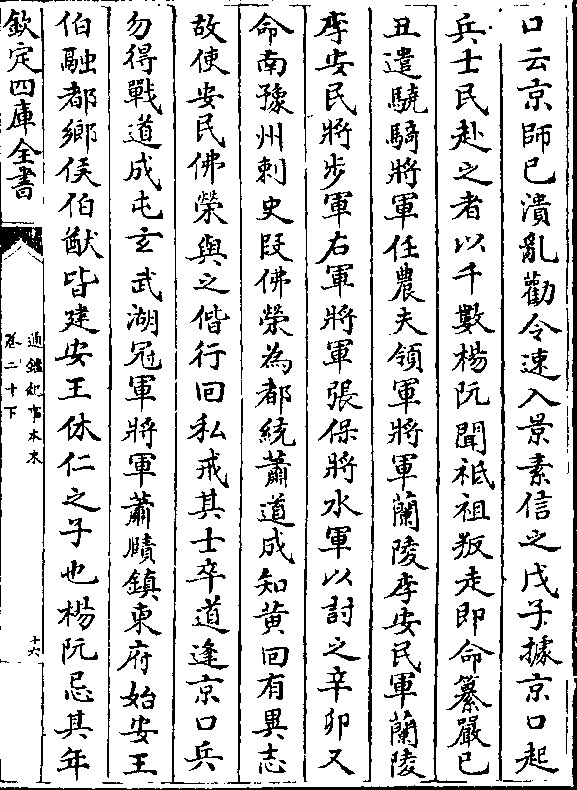 口云京師已潰亂勸令速入景素信之戊子據京口起
兵士民赴之者以千數楊阮聞祗祖叛走即命纂嚴已
丑遣驍騎將軍任農夫領軍將軍蘭陵李安民軍蘭陵
李安民將步軍右軍將軍張保將水軍以討之辛卯又
命南豫州刺史叚佛榮為都統蕭道成知黄回有異志
故使安民佛榮與之偕行回私戒其士卒道逢京口兵
勿得戰道成屯玄武湖冠軍將軍蕭賾鎮東府始安王
伯融都鄉侯伯猷皆建安王休仁之子也楊阮忌其年
欽定四庫全書
通鑑紀事本末
卷二十下
十六